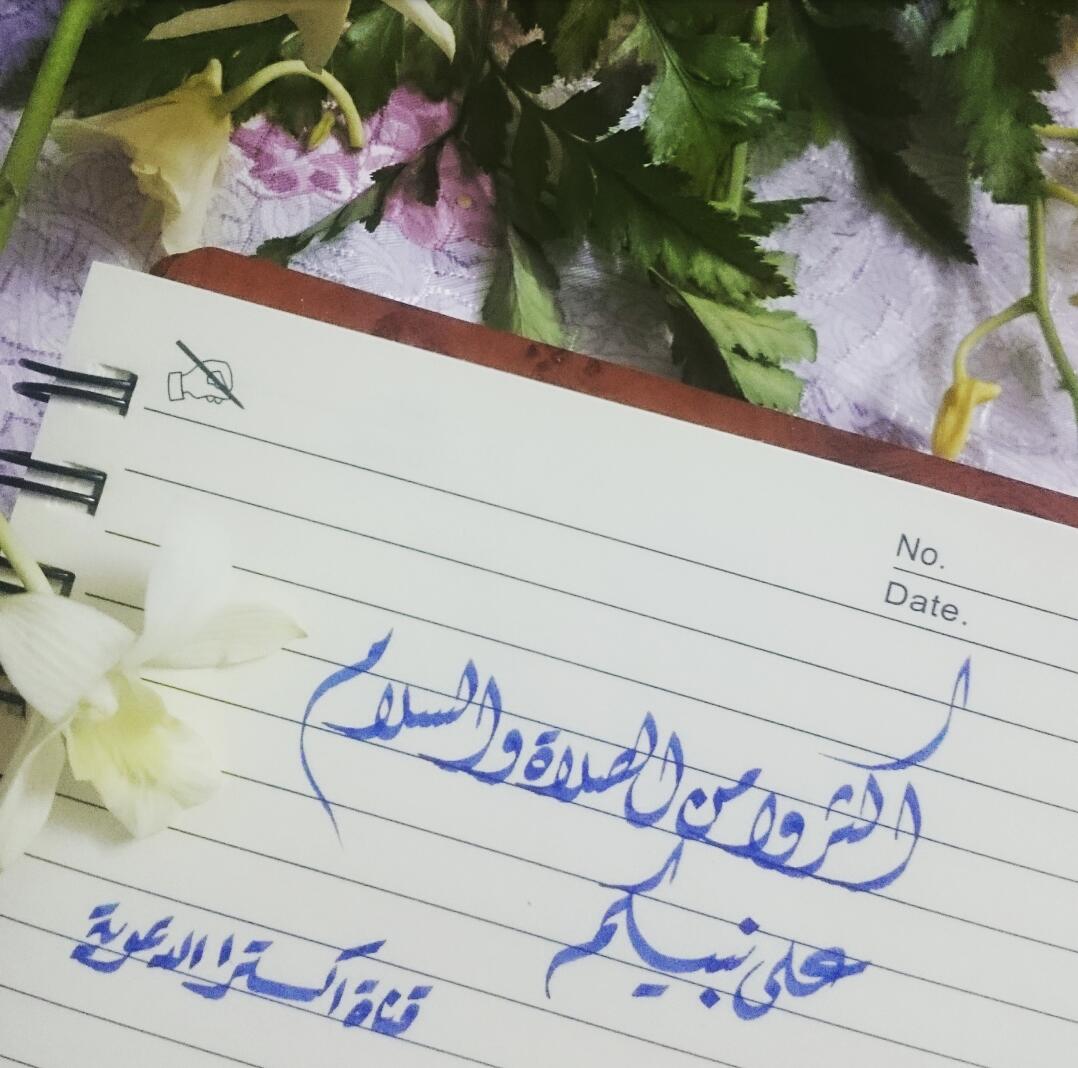 No.
Date.
اكثروا من الصلاة والسلام
على نبيكم
قناة اكسترا الدعوية